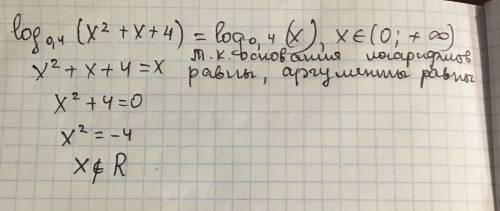 log₀,₄ (x² + x + 4) = log₀,₄ (x), x ∈ (0; + ∞)
т.к. основания логарифмов
x² + x + 4 = x равны, аргументы равны
x² + 4 = 0
x² = -4
x ∉ R